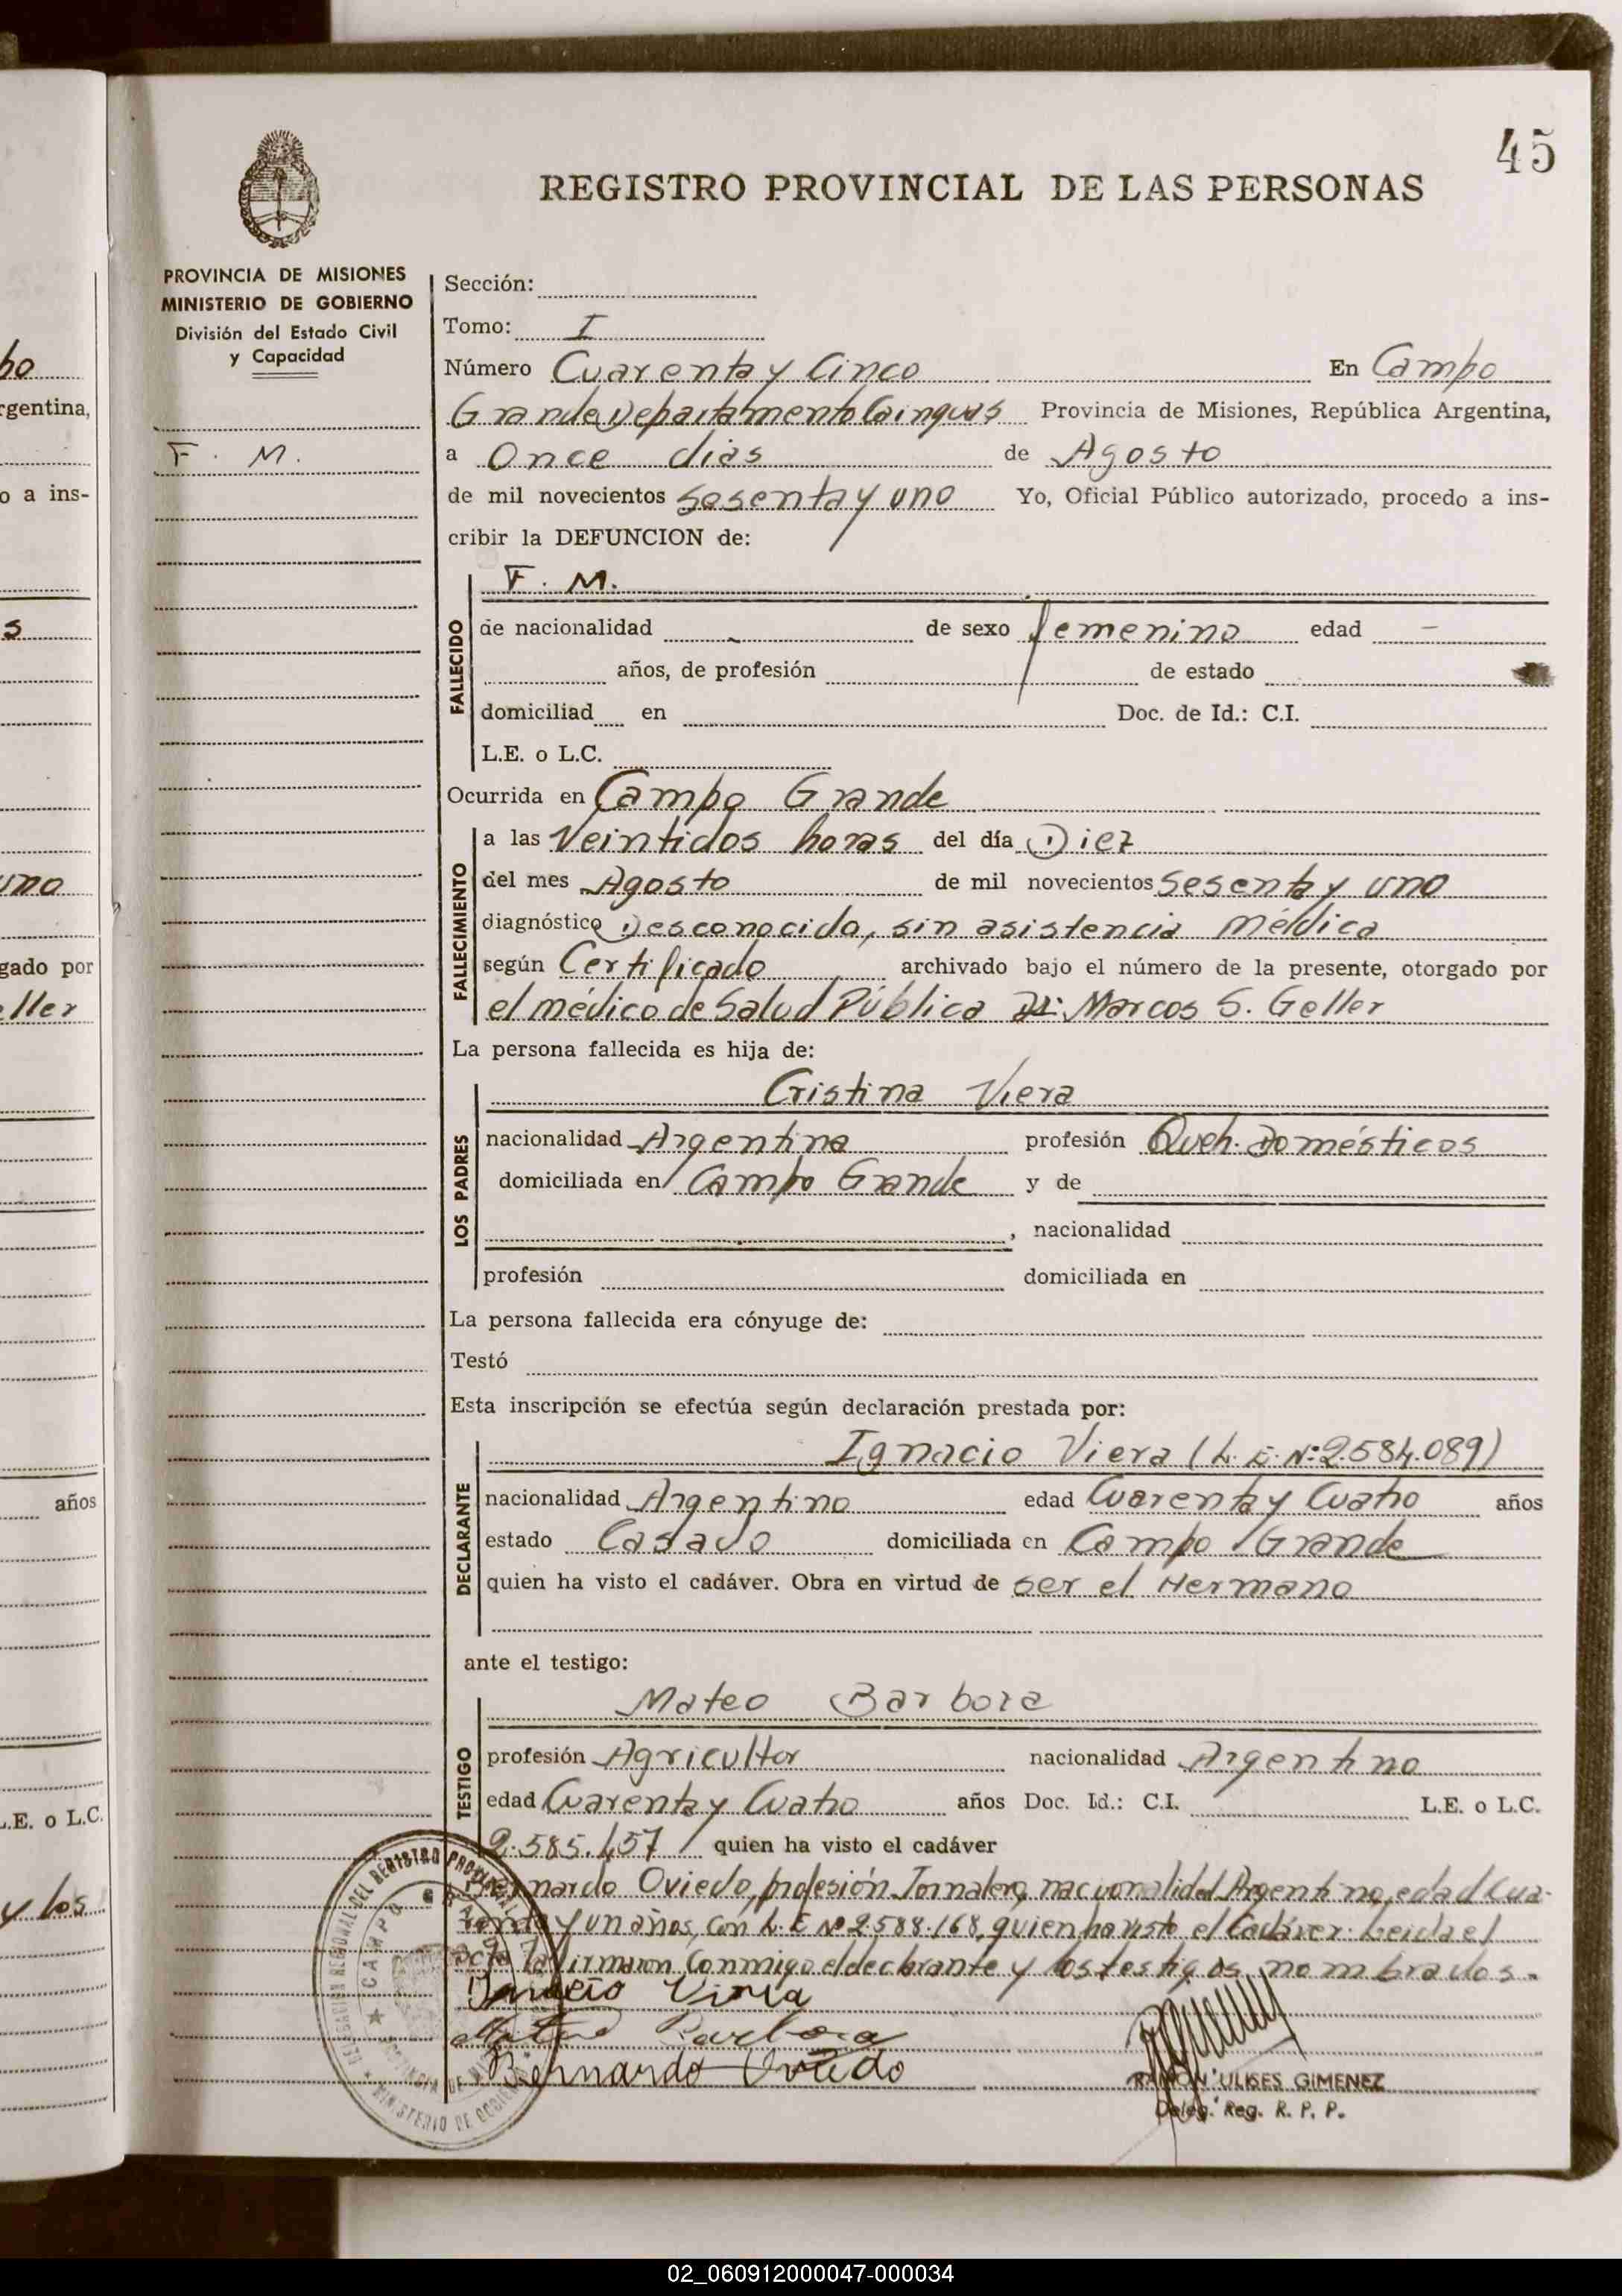 45
REGISTRO PROVINCIAL DE LAS PERSONAS
PROVINCIA DE MISIONES
MINISTERIO DE GOBIERNO
División del Estado Civil
y Capacidad
F. M.
Sección:
Tomo: I
Número Cuarenta y Cinco En Campo
Grande Departamento Cainguas Provincia de Misiones, República Argentina,
a Once dias de Agosto
de mil novecientos Sesenta y uno Yo, Oficial Público autorizado, procedo a ins-
cribir la DEFUNCION de:
F. M.
FALLECIDO
de nacionalidad - de sexo femenino edad -
años, de profesión de estado
domiciliad en Doc. de Id.: C.I.
L.E. o L.C.
Ocurrida en Campo Grande
FALLECIMIENTO
a las Veintidos horas del día Diez
del mes Agosto de mil novecientos Sesenta y uno
diagnóstico Desconocido, sin asistencia médica
según Certificado archivado bajo el número de la presente, otorgado por
el médico de Salud Pública Dr. Marcos S. Geller
La persona fallecida es hija de:
Cristina Viera
LOS PADRES
nacionalidad Argentina profesión Queh. Domésticos
domiciliada en Campo Grande y de
, nacionalidad
profesión domiciliada en
La persona fallecida era cónyuge de:
Testó
Esta inscripción se efectúa según declaración prestada por:
Ignacio Viera (L. E. Nº 2.584.089)
DECLARANTE
nacionalidad Argentino edad Cuarenta y Cuatro años
estado Casado domiciliada en Campo Grande
quien ha visto el cadáver. Obra en virtud de ser el Hermano
ante el testigo:
Mateo Barboza
TESTIGO
profesión Agricultor nacionalidad Argentino
edad Cuarenta y Cuatro años Doc. Id.: C.I. L.E. o L.C.
2.585.157 quien ha visto el cadáver
Bernardo Oviedo, profesión Jornalero, nacionalidad Argentino, edad Cua-
renta y un años, con L. E Nº 2.588.168, quien ha visto el Cadáver. Leida el
acta la firmaron conmigo el declarante y los testigos nombrados.
Viera
Mateo Barboza
Bernardo Oviedo
RAMON ULISES GIMENEZ
Deleg. Reg. R. P. P.
DELEGACION REGIONAL DEL REGISTRO PROVINCIAL
CAMPO
MINISTERIO DE GOBIERNO
ho
rgentina,
o a ins-
s
uno
gado por
eller
años
L.E. o L.C.
y los
02_060912000047-000034